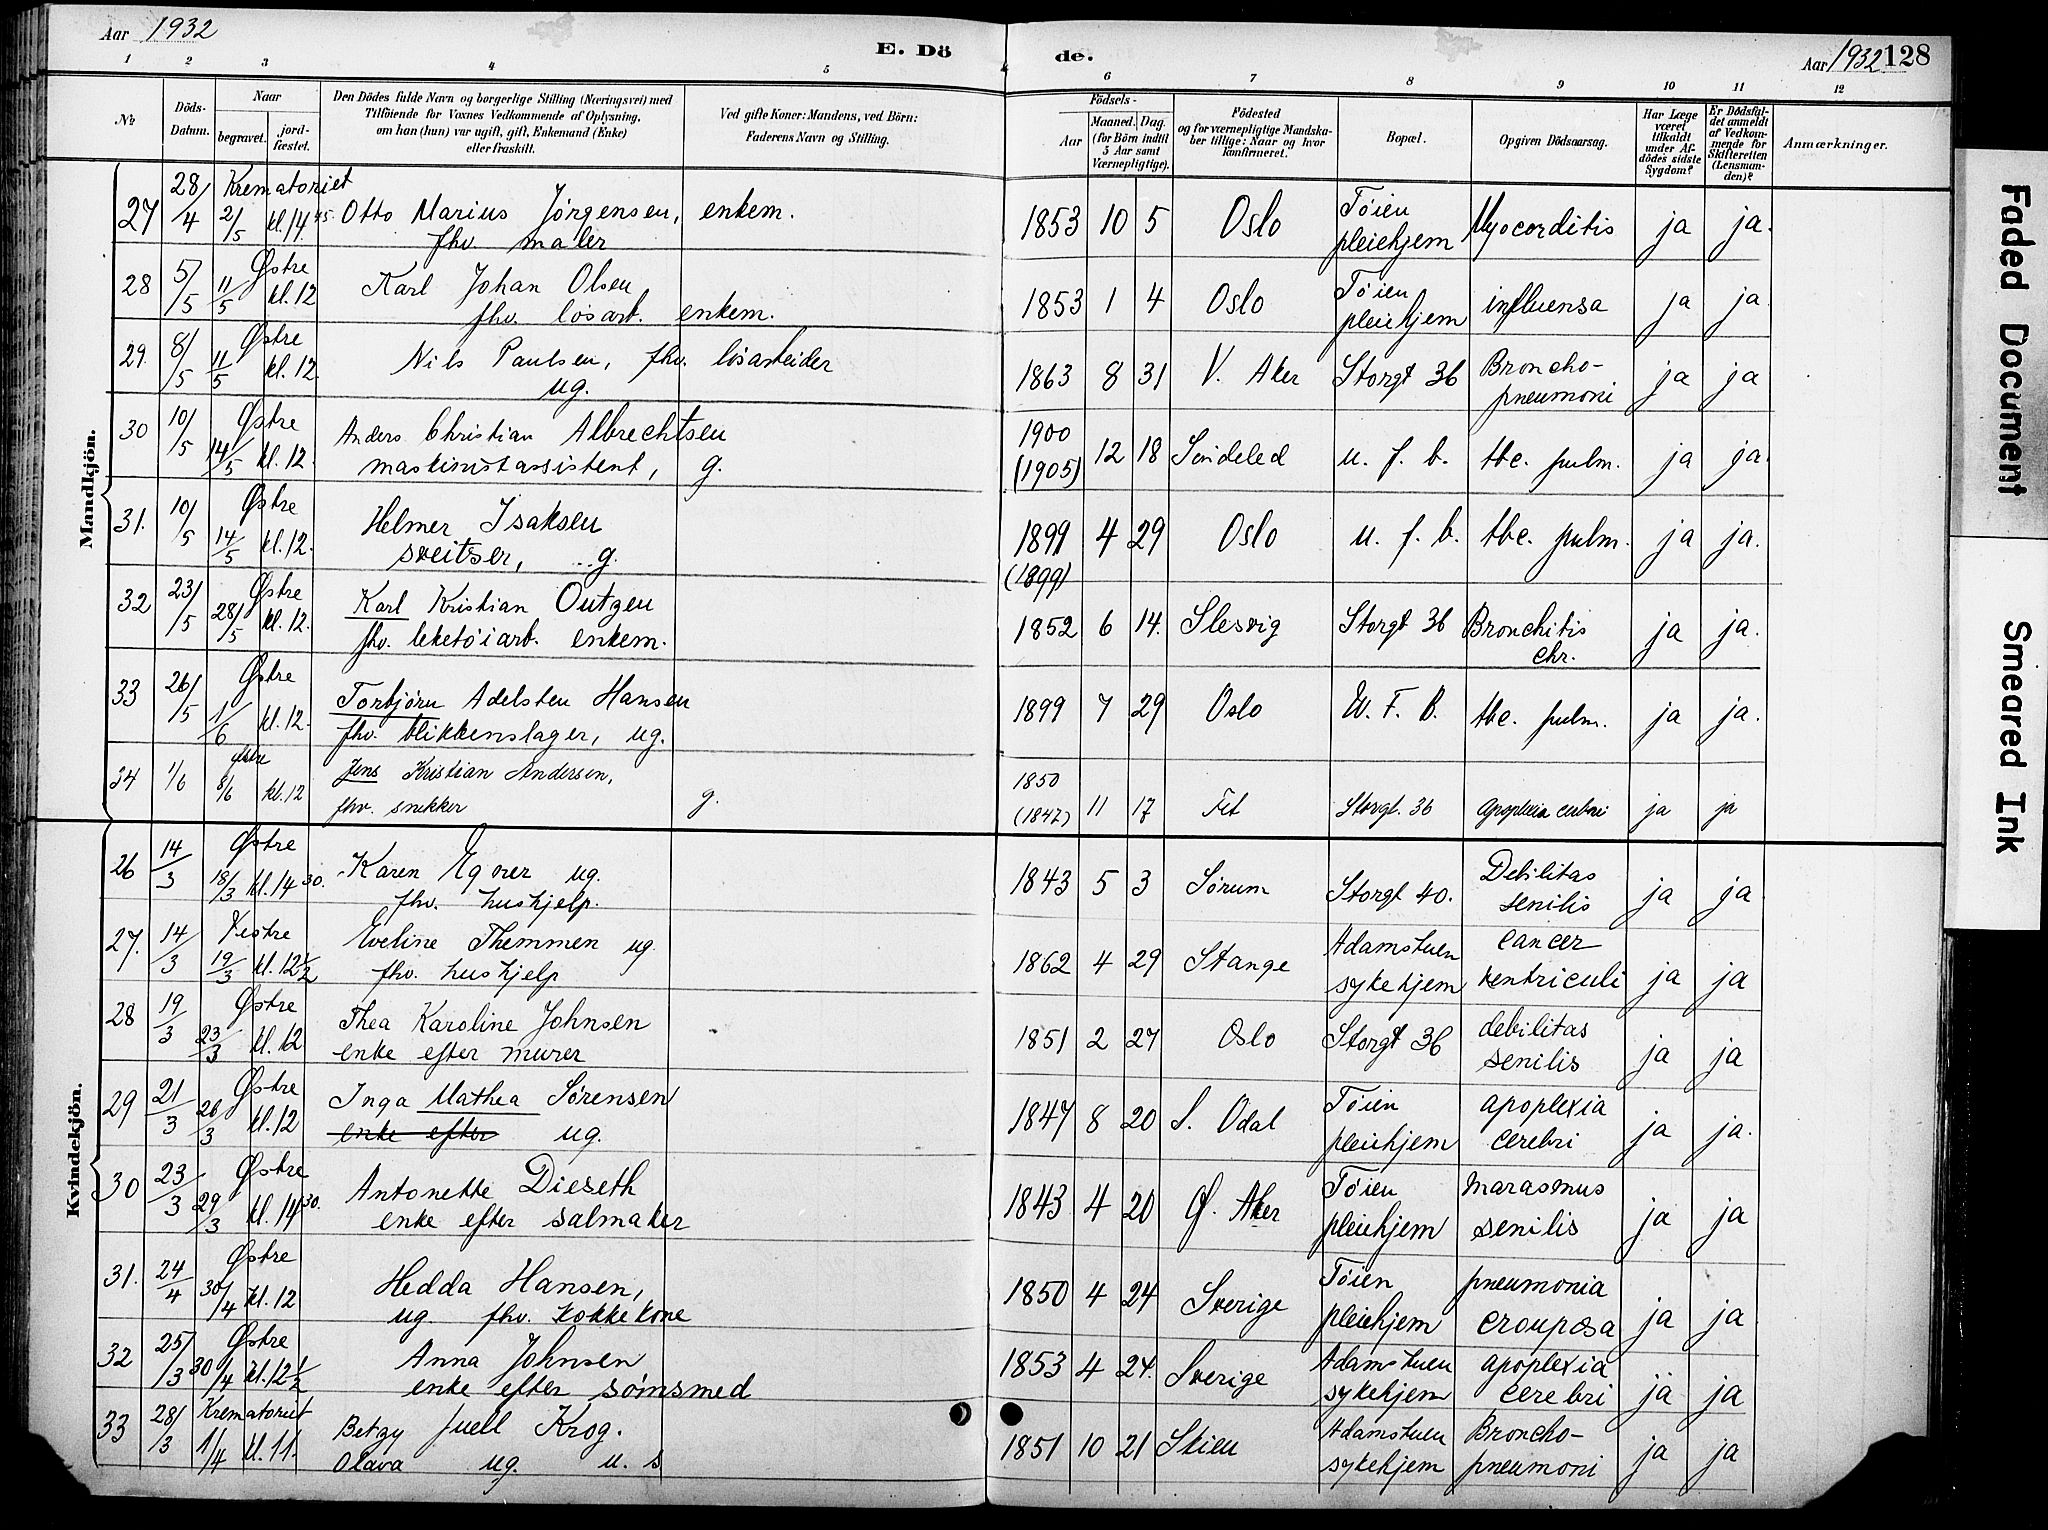 Aar 1932
E. Dö
de.
Aar 1932 128
1 2 3 4 5 6 7 8 9 10 11 12
No
Döds-Datum.
Naar
begravet.
jord-fæstet.
Den Dödes fulde Navn og borgerlige Stilling (Næringsvei) med
Tilföiende for Voxnes Vedkommende af Oplysning,
om han (hun) var ugift, gift, Enkemand (Enke)
eller fraskilt.
Ved gifte Koner: Mandens, ved Börn:
Faderens Navn og Stilling.
Födsels-
Aar
Maaned. Dag.
(for Börn indtil
5 Aar samt
Værnepligtige).
Födested
og for værnepligtige Mandska-
ber tillige: Naar og hvor
konfirmeret.
Bopæl.
Opgiven Dödsaarsag.
Har Læge
været
tilkaldt
under Af-
dödes sidste
Sygdom?
Er Dödsfal-
det anmeldt
af Vedkom-
mende for
Skifteretten
(Lensman-
den)?
Anmærkninger.
Mandkjön.
27 28/4 Krematoriet 2/5 kl. 14.45. Otto Marius Jörgensen, enkem.
fhv. maler
1853 10 5 Oslo Töien pleiehjem Myocorditis ja ja.
28 5/5 Østre 11/5 kl. 12 Karl Johan Olsen
fhv. løsarb. enkem.
1853 1 4 Oslo Töien pleiehjem influensa ja ja.
29. 8/5 Østre 11/5 kl. 12. Nils Paulsen, fhv. løsarbeider
ug.
1863 8 31 V. Aker Storgt 36 Broncho-pneumoni ja ja
30 10/5 Østre 14/5 kl. 12. Anders Christian Albrechtsen
maskinistassistent, g.
1900 (1905) 12 18 Søndeled u. f. b. tbc. pulm. ja ja.
31. 10/5 Østre 14/5 kl. 12. Helmer Isaksen
sveitser, g.
1899 (1899) 4 29 Oslo u. f. b. tbc. pulm. ja ja.
32 23/5 Østre 28/5 kl. 12. Karl Kristian Outzen
fhv. leketöiarb. enkem.
1852 6 14. Slesvig Storgt 36 Bronchitis chr. ja ja.
33 26/5 Østre 1/6 kl. 12. Torbjörn Adelsten Hansen
fhv. blikkenslager, ug.
1899 7 29 Oslo U. F. B. tbc. pulm. ja ja.
34 1/6 Østre 8/6 kl. 12 Jens Kristian Andersen,
fhv. snekker g.
1850 (1847) 11 17 Fet Storgt. 36 apoplexia cerebri ja ja
Kvindekjön.
26 14/3 Østre 18/3 kl. 14 30. Karen Egner ug.
fhv. hushjelp.
1843 5 3 Sørum Storgt 40. Debilitas senilis ja ja
27. 14/3 Vestre 19/3 kl. 12 1/2 Eveline Themmen ug.
fhv. hushjelp
1862 4 29 Stange Adamstuen sykehjem cancer ventriculi ja ja
28 19/3 Østre 23/3 kl. 12 Thea Karoline Johnsen
enke efter murer
1851 2 27 Oslo Storgt 36 debilitas senilis ja ja
29 21/3 Østre 26/3 kl. 12 Inga Mathea Sørensen
enke efter ug.
1847 8 20 S. Odal Töien pleiehjem apoplexia cerebri ja ja.
30 23/3 Østre 29/3 kl. 14 30. Antonette Dieseth
enke efter salmaker
1843 4 20 Ø. Aker Töien pleiehjem marasmus senilis ja ja
31. 24/4 Østre 30/4 kl. 12 Hedda Hansen,
ug. fhv. kokkekone
1850 4 24 Sverige Töien pleiehjem pneumonia crouposa ja ja
32 25/3 Østre 30/4 kl. 12 1/2 Anna Johnsen
enke efter sømsmed
1853 4 24. Sverige Adamstuen sykehjem apoplexia cerebri ja ja
33 28/3 Krematoriet 1/4 kl. 11. Betzy Juell Krog.
Olava ug. u. s
1851 10 21 Skien Adamstuen sykehjem Broncho-pneumoni ja ja
Faded Document
Smeared Ink